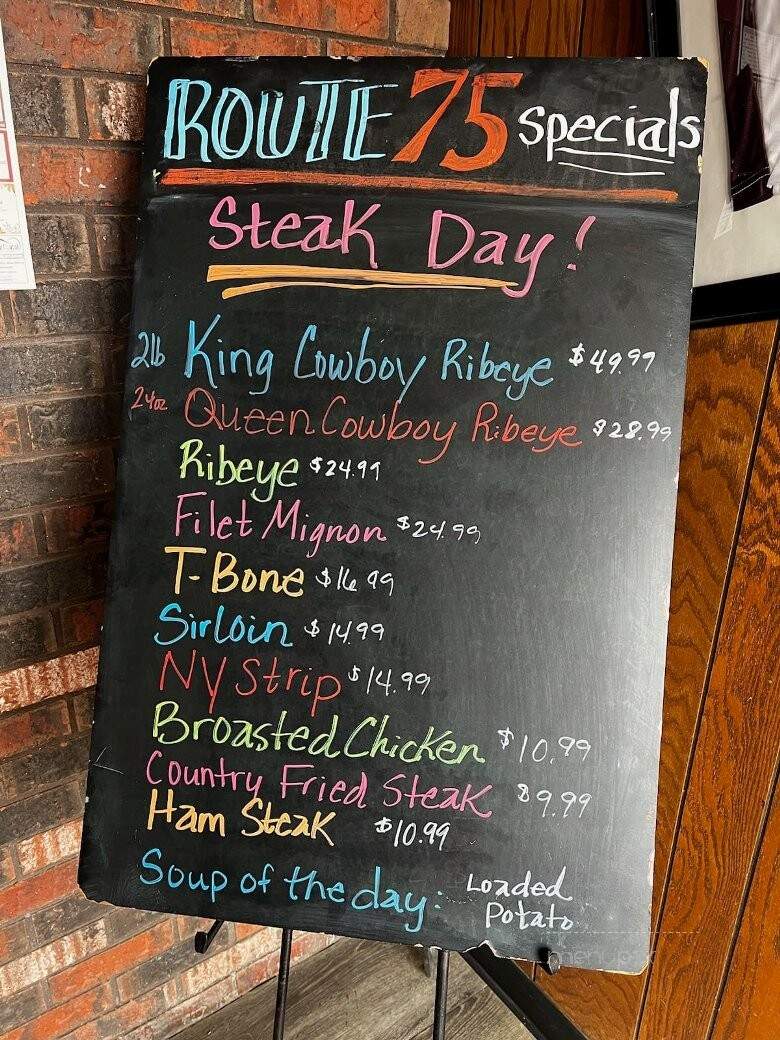 ROUTE 75 Specials
Steak Day!
2lb King Cowboy Ribeye $49.99
24oz Queen Cowboy Ribeye $28.99
Ribeye $24.99
Filet Mignon $24.99
T-Bone $16.99
Sirloin $14.99
NY Strip $14.99
Broasted Chicken $10.99
Country Fried Steak $9.99
Ham Steak $10.99
Soup of the day: Loaded
Potato